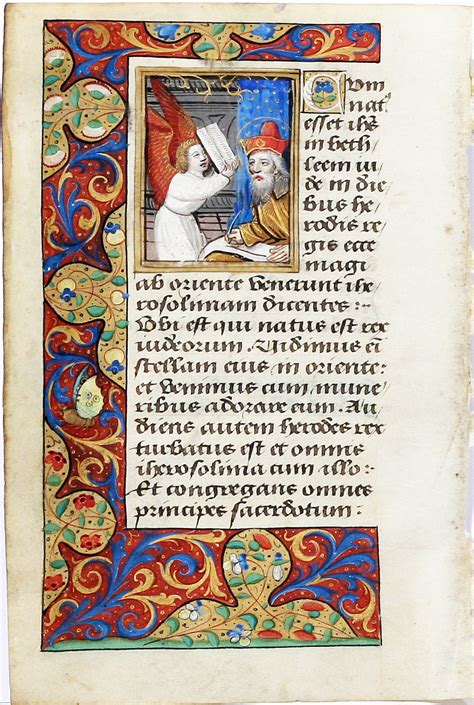 Cum
nat⁹
esset ihs̄
in beth/
leem iu/
de in die
bus he/
rodis re
gis ecce
magi
ab oriente venerunt ihe
rosolimam dicentes :
Vbi est qui natus est rex
iudeorum. Vidimus eī
stellam eius in oriente:
et venimus cum mune/
ribus adorare eum. Au/
diens autem herodes rex
turbatus est et omnis
iherosolima cum illo:
Et congregans omnes
principes sacerdotum: